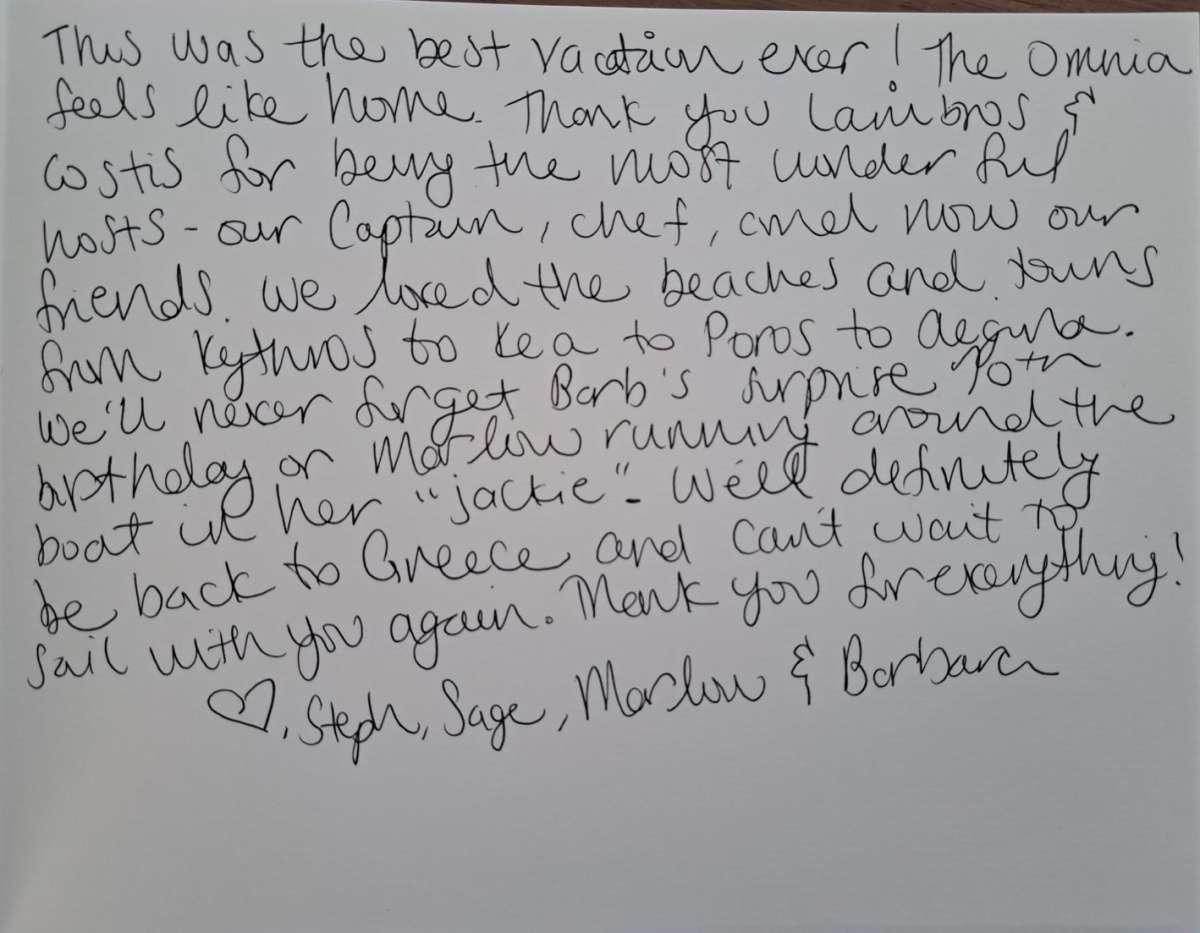 This was the best vacation ever! The Omnia
feels like home. Thank you Lambros &
Costis for being the most wonderful
hosts - our Captain, chef, and now our
friends. We loved the beaches and towns
from Kythnos to Kea to Poros to Aegina.
We'll never forget Barb's surprise 70th
birthday or Marlow running around the
boat in her "jackie". We'll definitely
be back to Greece and can't wait to
sail with you again. Thank you for everything!
♡, Steph, Sage, Marlow & Barbara